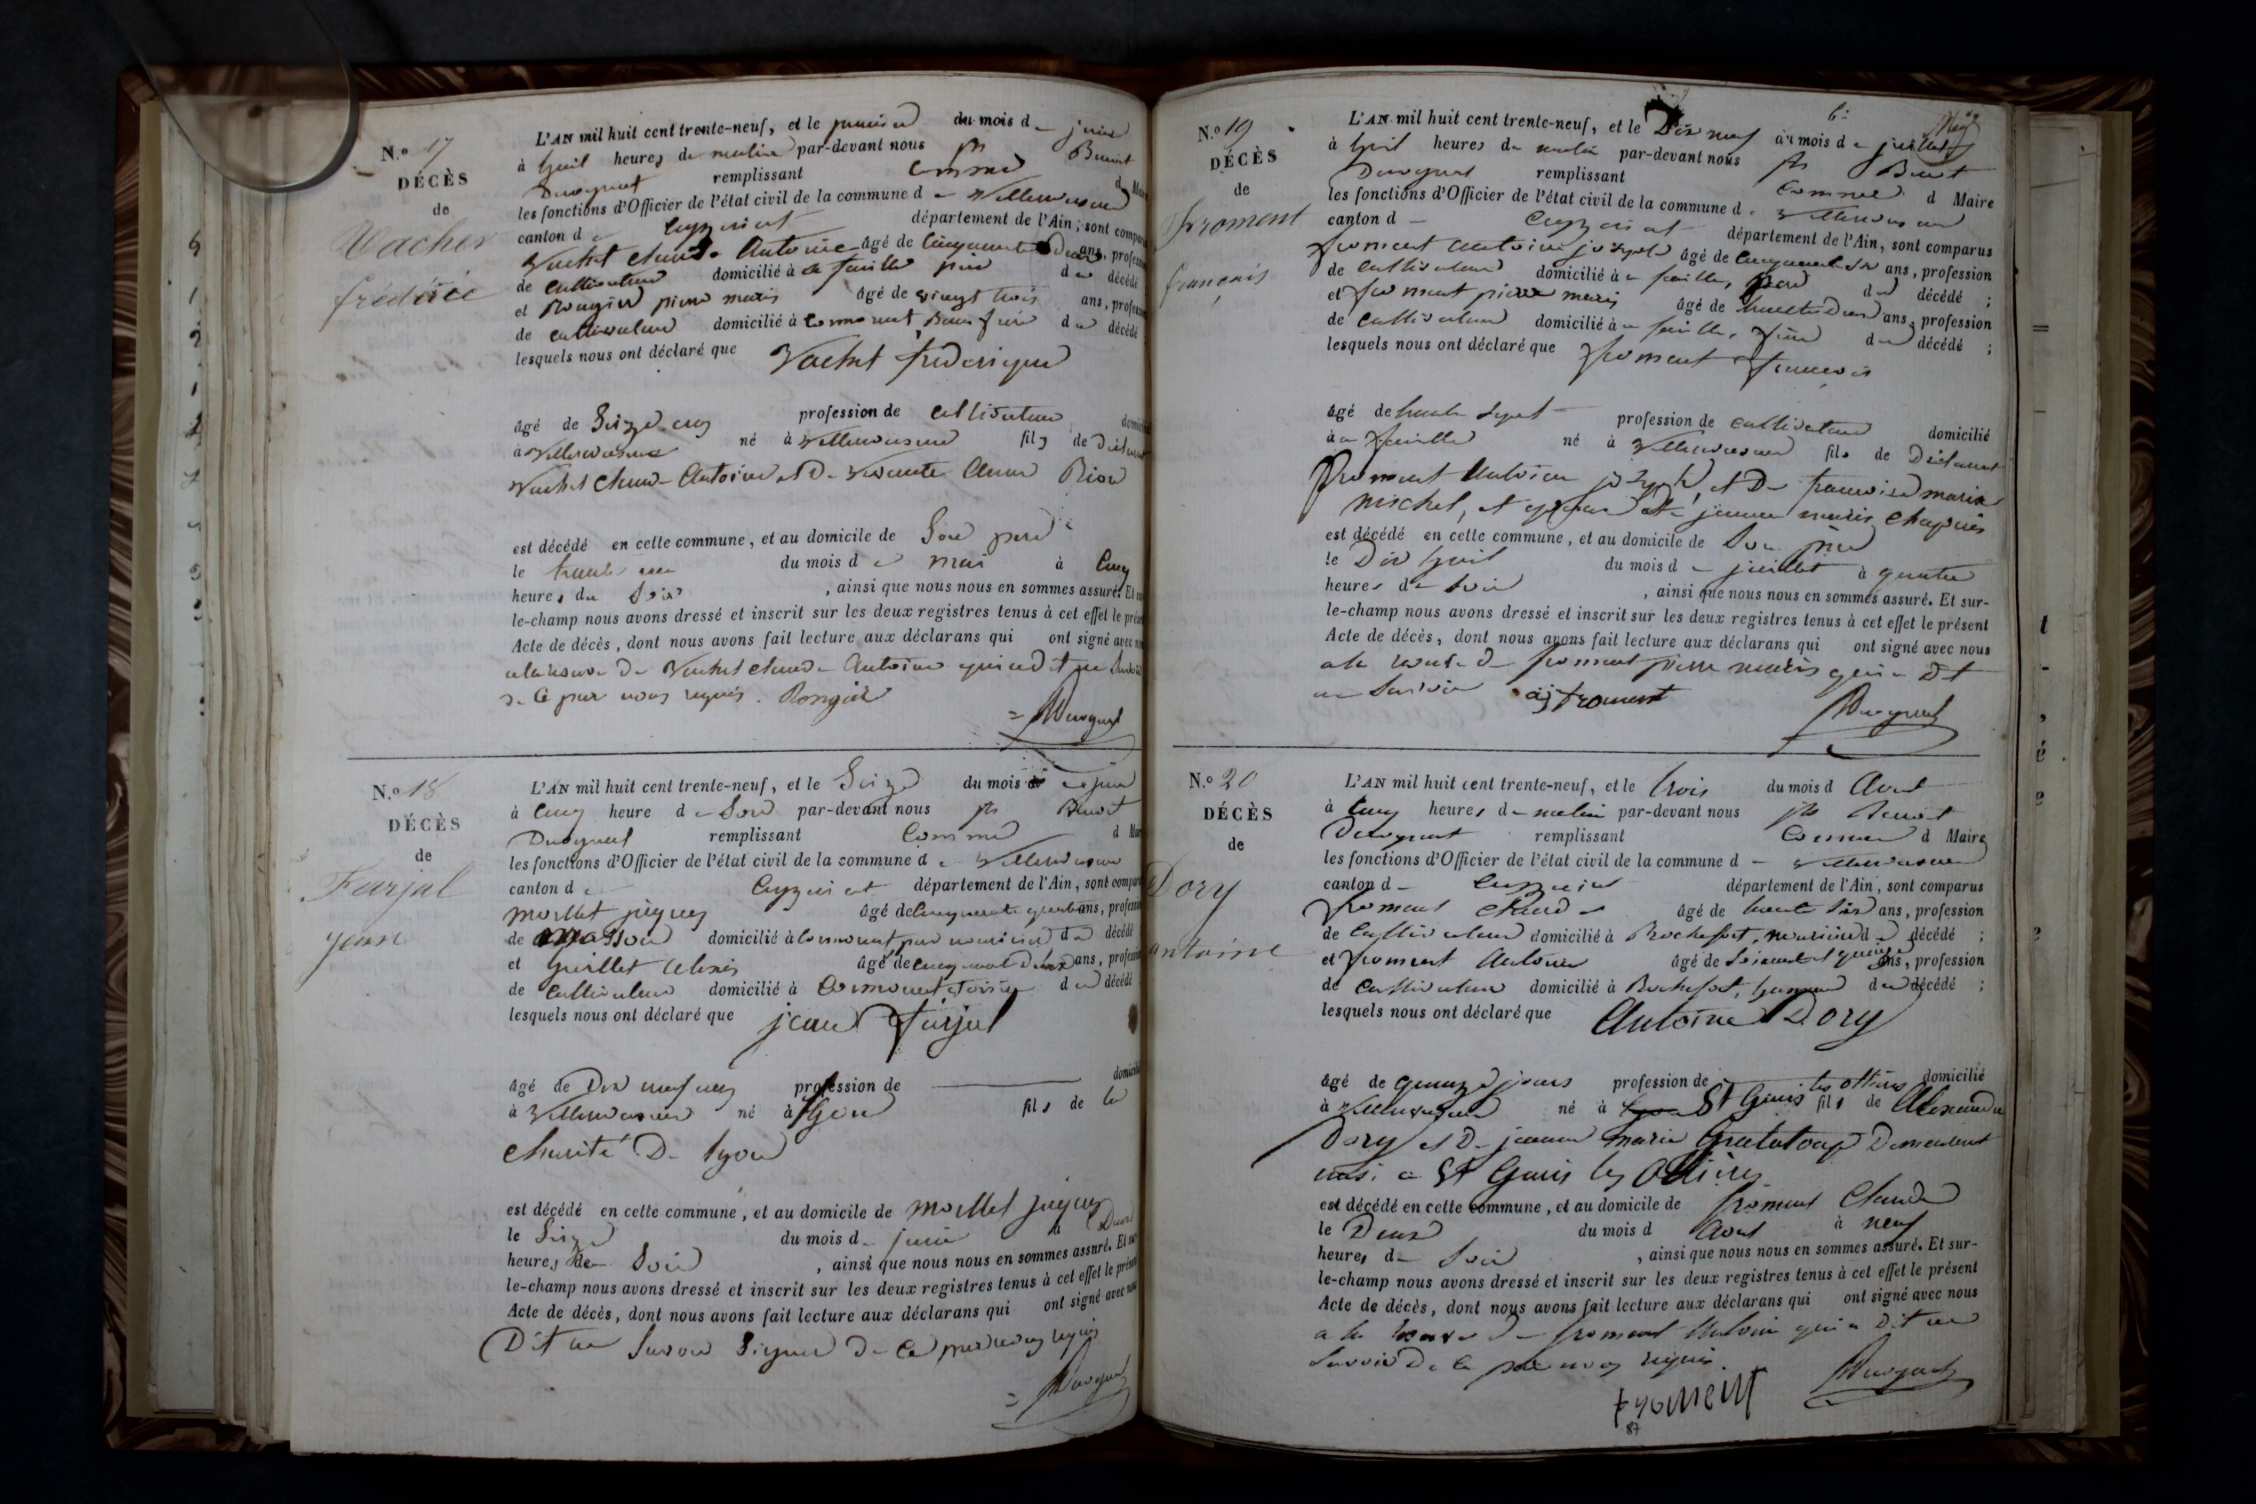 N.º 17
DÉCÈS
de
Vacher
frédéric
L'AN mil huit cent trente-neuf, et le premier du mois de juin
à huit heures du matin par-devant nous Benoit
Duvoynet remplissant comme d Mai
les fonctions d'Officier de l'état civil de la commune de
canton de Ceyzeriat département de l'Ain, sont compar
Claude Antoine âgé de Cinquante Deux ans, profess
de cultivateur domicilié à père du décédé
et pierre marie âgé de vingt trois ans, profess
de cultivateur domicilié à Beau frère du décédé
lesquels nous ont déclaré que Vachet frederique
âgé de Seize ans profession de cultivateur domici
à né à fils de Déclarant
Vachet Claude Antoine et De Anne
est décédé en cette commune, et au domicile de Son père
le trente un du mois de mai à Cinq
heures du Soir, ainsi que nous nous en sommes assuré. Et su
le-champ nous avons dressé et inscrit sur les deux registres tenus à cet effet le prése
Acte de décès, dont nous avons fait lecture aux déclarans qui ont signé avec no
Vachet Claude Antoine
De Ce par nous requis.
N.º 18
DÉCÈS
de
Furjal
jean
L'AN mil huit cent trente-neuf, et le Seize du mois de juin
à Cinq heure de Soir par-devant nous Benoit
Duvoynet remplissant Comme d Mai
les fonctions d'Officier de l'état civil de la commune de
canton de Ceyzeriat département de l'Ain, sont compar
âgé de Cinquante quatre ans, profess
de domicilié à père nouricier du décédé
et âgé de Cinquante Deux ans, profess
de Cultivateur domicilié à voisin du décédé
lesquels nous ont déclaré que jean Furjal
âgé de Dix neuf ans profession de domicilié
à né à Lyon fils de la
Charité De Lyon
est décédé en cette commune, et au domicile de
le Seize du mois de juin à Deux
heures de Soir, ainsi que nous nous en sommes assuré. Et su
le-champ nous avons dressé et inscrit sur les deux registres tenus à cet effet le présen
Acte de décès, dont nous avons fait lecture aux déclarans qui ont signé avec nous
Dit ne Savoir Signer De Ce par nous requis
N.º 19
DÉCÈS
de
Froment
françois
L'AN mil huit cent trente-neuf, et le Dix neuf du mois de juillet
à huit heures du matin par-devant nous Benoit
Duvoynet remplissant Comme d Maire
les fonctions d'Officier de l'état civil de la commune de
canton d Ceyzeriat département de l'Ain, sont comparus
froment antoine joseph âgé de Cinquante Six ans, profession
de cultivateur domicilié à père du décédé ;
et froment pierre marie âgé de trente Deux ans, profession
de cultivateur domicilié à frère du décédé ;
lesquels nous ont déclaré que froment françois
âgé de trente Sept profession de cultivateur domicilié
à né à fils de Déclarant
froment Antoine joseph, et De françoise marie
michel, et époux de jeanne marie Chapuis
est décédé en cette commune, et au domicile de Son père
le Dix huit du mois de juillet à quatre
heures de Soir, ainsi que nous nous en sommes assuré. Et sur-
le-champ nous avons dressé et inscrit sur les deux registres tenus à cet effet le présent
Acte de décès, dont nous avons fait lecture aux déclarans qui ont signé avec nous
froment pierre marie qui a Dit
ne Savoir aj froment
N.º 20
DÉCÈS
de
Dory
antoine
L'AN mil huit cent trente-neuf, et le trois du mois d Aout
à Cinq heures du matin par-devant nous Benoit
Duvoynet remplissant Comme d Maire
les fonctions d'Officier de l'état civil de la commune d
canton d Ceyzeriat département de l'Ain, sont comparus
froment Claude âgé de trente Six ans, profession
de Cultivateur domicilié à Rochefort, nouricier du décédé ;
et froment Antoine âgé de Soixante et quinze ans, profession
de Cultivateur domicilié à Rochefort, du décédé ;
lesquels nous ont déclaré que Antoine Dory
âgé de quinze jours profession de domicilié
à né à St Genis les ottières fils de Alexandre
Dory et De jeanne marie Grataloup Demeurant
à St Genis les Ottières
est décédé en cette commune, et au domicile de froment Claude
le Deux du mois d Aout à neuf
heures de Soir, ainsi que nous nous en sommes assuré. Et sur-
le-champ nous avons dressé et inscrit sur les deux registres tenus à cet effet le présent
Acte de décès, dont nous avons fait lecture aux déclarans qui ont signé avec nous
froment Antoine qui a Dit ne
Savoir De Ce par nous requis.
froment
87